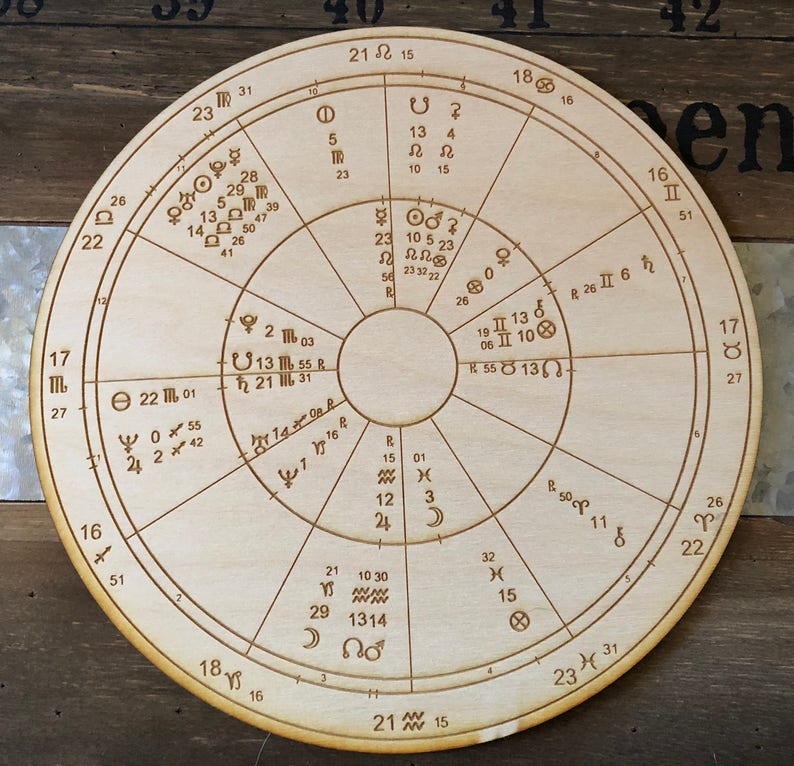 39 40 41 42
een
21 ♌ 15
18 ♋ 16
16 ♊ 51
17 ♉ 27
26 ♈ 22
23 ♓ 31
21 ♒ 15
18 ♑ 16
16 ♐ 51
17 ♏ 27
26 ♎ 22
23 ♍ 31
10
9
8
7
6
5
4
3
2
1
12
11
5 ♍ 23
☋ 13 ♌ 10
⚳ 4 ♌ 15
♄ 6 ♊ 26 ℞
℞ 50 ♈ 11 ⚷
32 ♓ 15 ⊗
21 ♑ 29 ☽
10 ♒ 13 ☊
30 ♒ 14 ♂
22 ♏ 01
♆ 0 ♐ 55
♃ 2 ♐ 42
☿ 28 ♍ 39
♇ 29 ♍
☉ 5 ♎ 47
♅ 13 ♎ 50 26
♀ 14 ♎ 41
☿ 23 ♌ 56 ℞
☉ 10 ♌ 23
♂ 5 ♌ 32
⚳ 23 ♋ 22
♀ 0 ♋ 26
⚷ 13 ♊ 19
⊗ 10 ♊ 06
℞ 55 ♉ 13 ☊
01 ♓ 3 ☽
℞ 15 ♒ 12 ♃
♆ 1 ♑ 16 ℞
♅ 14 ♐ 08 ℞
♄ 21 ♏ 31
☋ 13 ♏ 55 ℞
♇ 2 ♏ 03